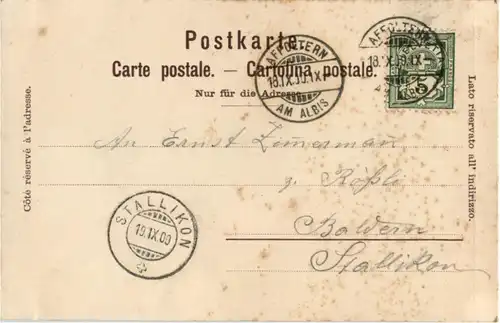 Postkarte.
Carte postale. — Cartolina postale.
Nur für die Adresse.
Côté réservé à l'adresse.
Lato riservato all' indirizzo.
AFFOLTERN
18.IX.09.IX
AM ALBIS
AFFOLTERN
18.IX.09.IX
5
An Ernst Zimmerman
z. Rößli
Baldern
Stallikon
STALLIKON
19.IX.09